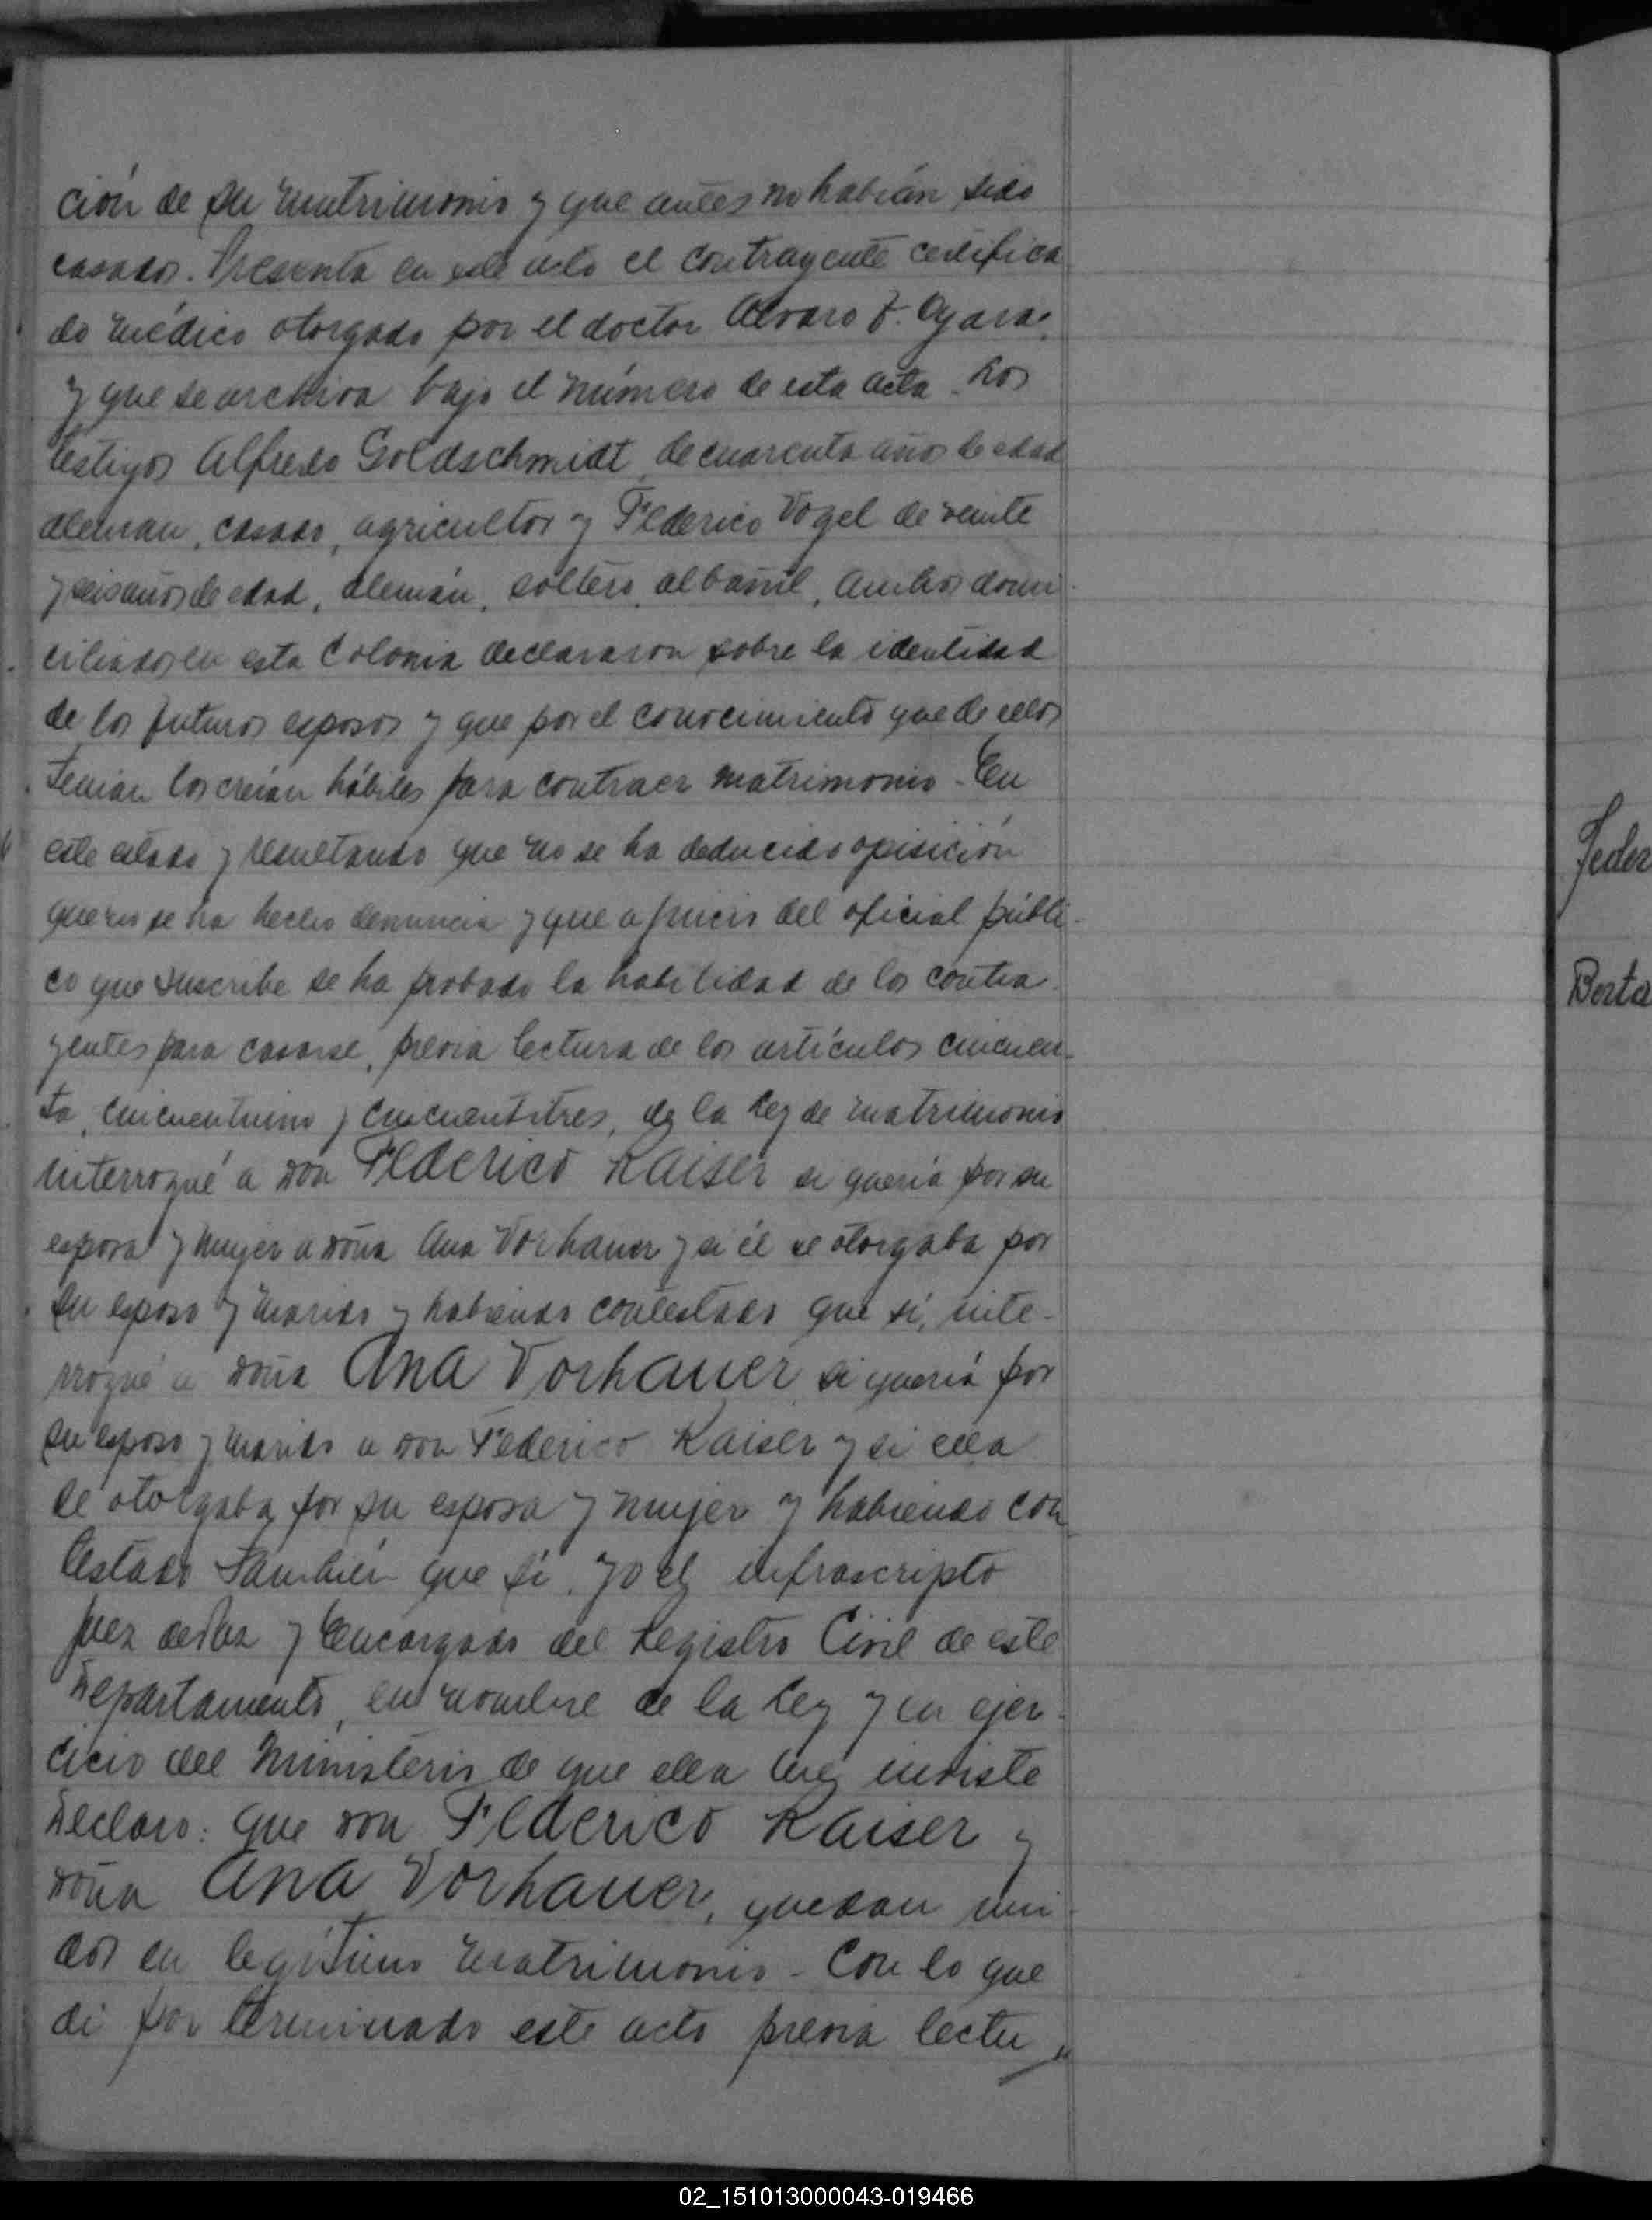 ción de su matrimonio y que antes no habián sido
casados. Presenta en este acto el contrayente certifica
do médico otorgado por el doctor Alvaro F. Ayara,
y que se archiva bajo el número de esta acta. Los
testigos Alfredo Goldschmidt, de cuarenta años de edad
aleman, casado, agricultor y Federico Vogel de veinte
y seis años de edad, alemán, soltero, albañil, ambos domi-
ciliados en esta Colonia declararon sobre la identidad
de los futuros esposos y que por el conocimiento que de ellos
tenian los creian hábiles para contraer matrimonio - En
este estado y resultando que no se ha deducido oposición
que no se ha hecho denuncia y que a juicio del oficial públi-
co que suscribe se ha probado la habilidad de los contra-
yentes para casarse, previa lectura de los artículos cincuen-
ta, cincuentiuno y cincuentitres, de la Ley de matrimonio
interrogué a don Federico Kaiser si queria por su
esposa y mujer a doña Ana Vorhauer y si él se otorgaba por
su esposo y marido y habiendo contestado que si, inte-
rrogué a doña Ana Vorhauer si queriá por
su esposo y marido a don Federico Kaiser y si ella
se otorgaba por su esposa y mujer y habiendo con
testado también que si. yo el infrascripto
Juez de Paz y Encargado del Registro Civil de este
Departamento, en nombre de la Ley y en ejer-
cicio del ministerio de que ella me inviste
Declaro: que don Federico Kaiser y
doña Ana Vorhauer, quedan uni-
dos en legitimo matrimonio - Con lo que
di por terminado este acto previa lectu
Feder
Berta
02_151013000043-019466